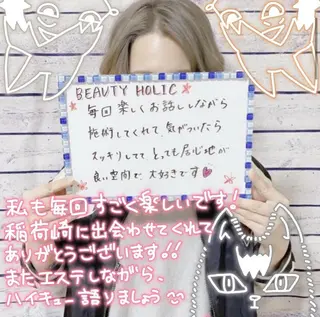 BEAUTY HOLIC
毎回楽しくお話ししながら
施術してくれて、気がついたら
スッキリしてて とっても居心地が
良い空間で 大好きです
私も毎回すごく楽しいです!
稲荷崎に出会わせてくれて
ありがとうございます!!
またエステしながら、
ハイキュー語りましょう